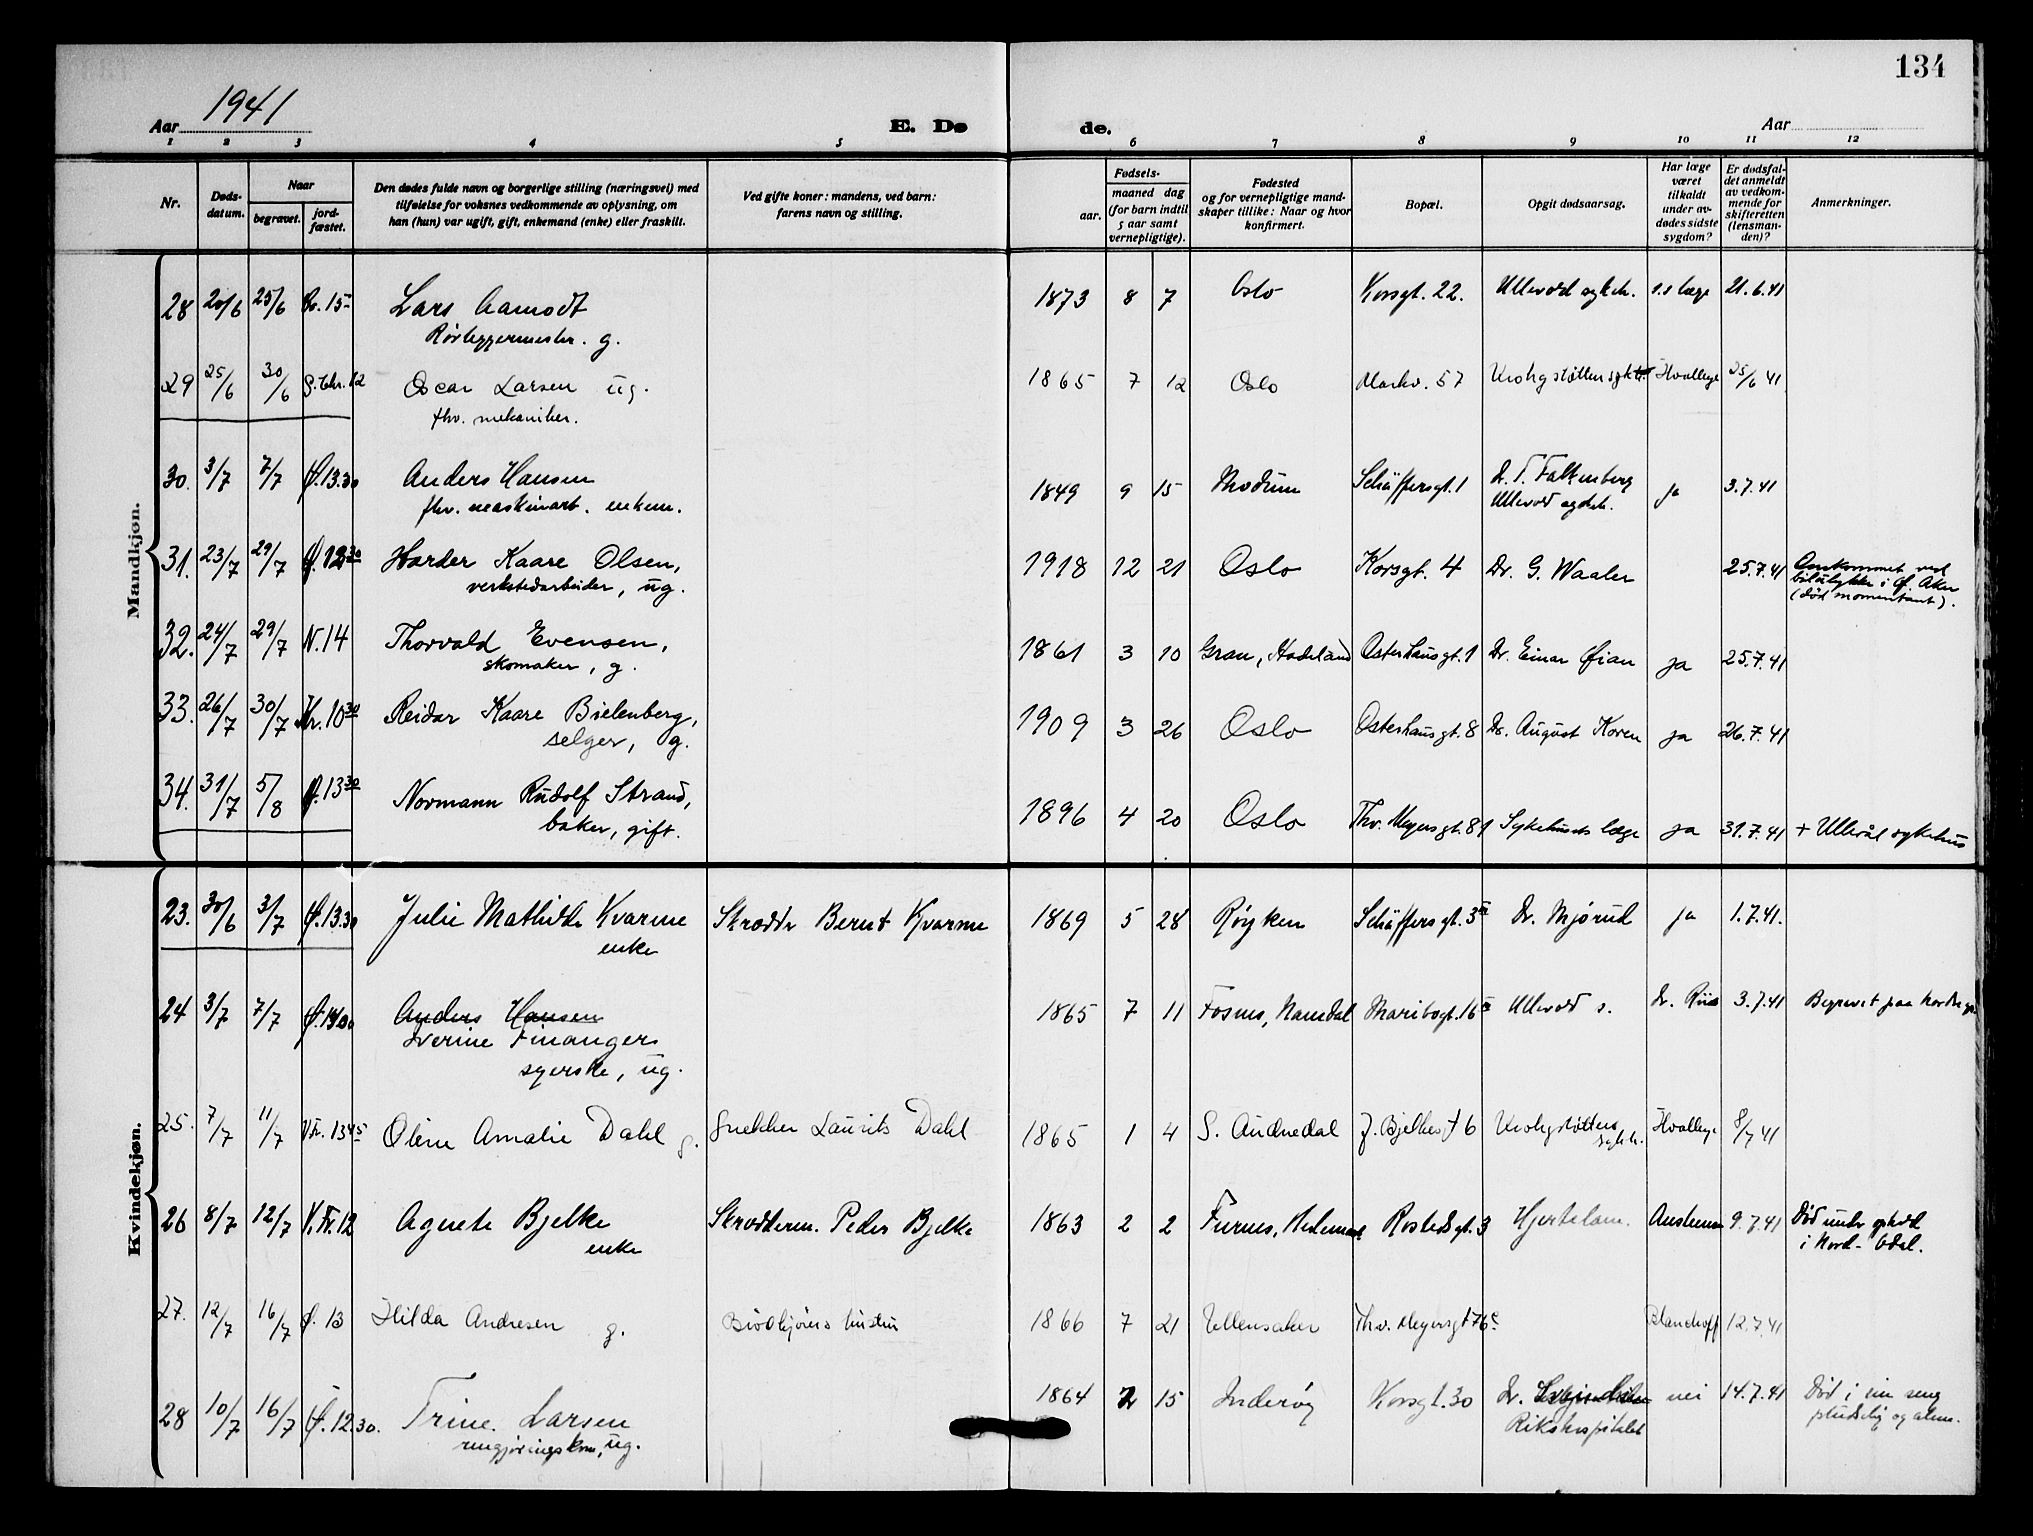 134
Aar 1941
E. Dø
de.
Aar
1 2 3 4 5 6 7 8 9 10 11 12
Nr.
Døds-
datum.
Naar
begravet.
jord-
fæstet.
Den dødes fulde navn og borgerlige stilling (næringsvei) med
tilføielse for voksnes vedkommende av oplysning, om
han (hun) var ugift, gift, enkemand (enke) eller fraskilt.
Ved gifte koner: mandens, ved barn:
farens navn og stilling.
Fødsels-
aar.
maaned dag
(for barn indtil
5 aar samt
vernepligtige).
Fødested
og for vernepligtige mand-
skaper tillike: Naar og hvor
konfirmert.
Bopæl.
Opgit dødsaarsag.
Har læge
været
tilkaldt
under av-
dødes sidste
sygdom?
Er dødsfal-
det anmeldt
av vedkom-
mende for
skifteretten
(lensman-
den)?
Anmerkninger.
Mandkjøn.
28 20/6 25/6 15 Lars Aamodt 1873 8 7 Oslo Korsgt. 22. Ullevål sykeh. læge 21.6.41
Rørleggermester. g.
29 25/6 30/6 12 Oscar Larsen ug. 1865 7 12 Oslo Markv. 57 Krohgstøttens sykh. 25/6 41
fhv. mekaniker.
30. 3/7 7/7 13.30 Anders Hansen 1849 9 15 Modum Schäffersgt. 1 Dr. T. Falkenberg ja 3.7.41
fhv. maskinarb. enkem. Ullevål sykeh.
31. 23/7 29/7 12 30 Harder Kaare Olsen, 1918 12 21 Oslo Korsgt. 4 Dr. G. Waaler 25.7.41 Omkommet ved
verkstedarbeider, ug. bilulykke i Ø. Aker
(død momentant).
32. 24/7 29/7 N. 14 Thorvald Evensen, 1861 3 10 Gran, Hadeland Osterhausgt. 1 Dr. Einar Øian ja 25.7.41
skomaker, g.
33. 26/7 30/7 Kr. 10 30 Reidar Kaare Bielenberg, 1909 3 26 Oslo Osterhausgt. 8 Dr. August Koren ja 26.7.41
selger, g.
34. 31/7 5/8 13 30 Normann Rudolf Strand, 1896 4 20 Oslo Thv. Meyersgt. 81 Sykehusets læge ja 31.7.41 + Ullevål sykehus
baker, gift.
Kvindekjøn.
23. 30/6 3/7 13.30 Julie Mathilde Kvarme Skrædder Bernt Kvarme 1869 5 28 Røyken Schäffersgt. 3 Dr. Mjørud ja 1.7.41.
enke
24 3/7 7/7 Anders Hansen 1865 7 11 Fosnes, Namdal Maribogt. 16 Ullevål s. Dr. Riis 3.7.41 Begravet paa Nordre gr.
Iverine Finangers
syerske, ug.
25. 7/7 11/7 13 45 Oline Amalie Dahl g. Snekker Laurits Dahl 1865 1 4 S. Audnedal J. Bjelkesgt 6 Krohgstøttens 8/7 41
sykh.
26 8/7 12/7 V. Fr. 12 Agnete Bjelke Skrædderm. Peder Bjelke 1863 2 2 Furnes, Hedemark Rostedsgt. 3 Hjertelam. 9.7.41 Død under ophold
enke i Nord-Odal.
27. 12/7 16/7 13 Hilda Andresen g. Brødkjørers hustru 1866 7 21 Ullensaker Thv. Meyersgt 76 Blanchoff 12.7.41
28 10/7 16/7 12.30. Trine Larsen 1864 2 15 Inderøy Korsgt. 30 Dr. nei 14.7.41 Død i sin seng
rengjøringskone, ug. Rikshospitalet pludselig og alene.